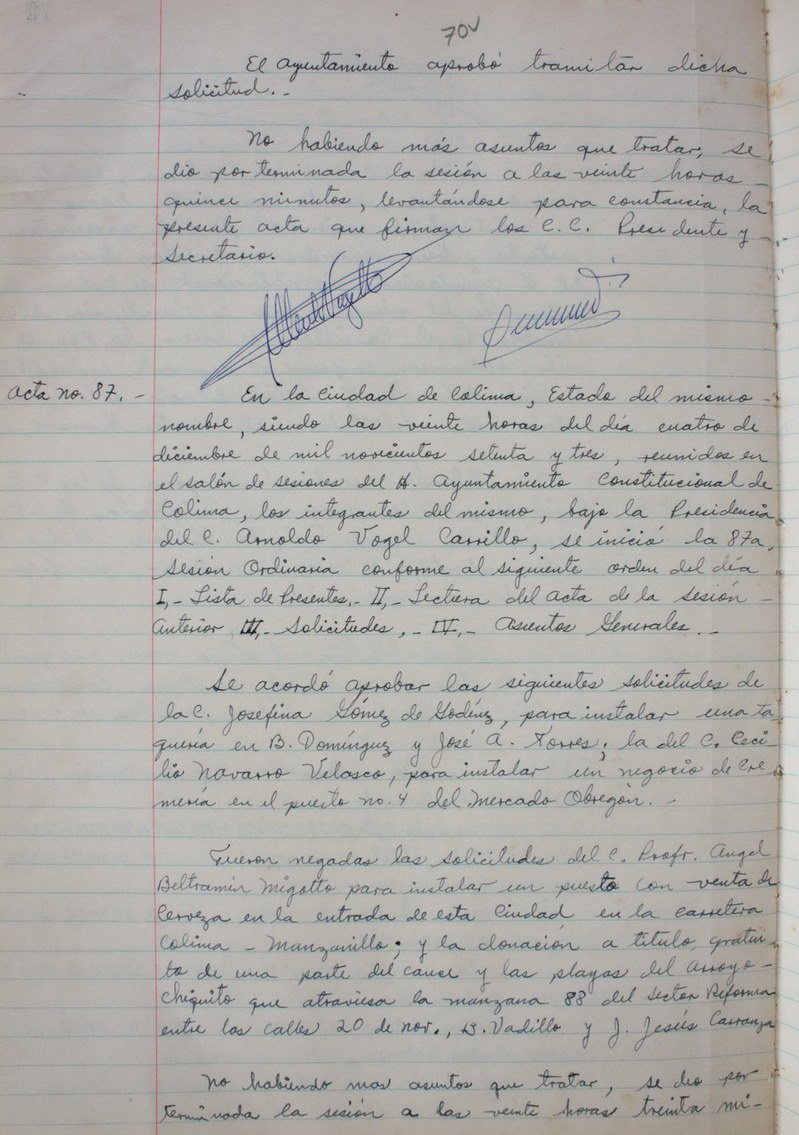 70v
El Ayuntamiento aprobó tramitar dicha
solicitud.-
No habiendo más asuntos que tratar, se
dio por terminada la sesión a las veinte horas
quince minutos, levantándose para constancia, la
presente acta que firman los C.C. Presidente y
Secretario.
Acta no. 87.-
En la Ciudad de Colima, Estado del mismo
nombre, siendo las veinte horas del día cuatro de
diciembre de mil novecientos setenta y tres, reunidos en
el salón de sesiones del H. Ayuntamiento Constitucional de
Colima, los integrantes del mismo, bajo la Presidencia
del C. Arnoldo Vogel Carrillo, se inició la 87a.
Sesión Ordinaria conforme al siguiente orden del día
I,- Lista de Presentes.- II,- Lectura del acta de la sesión -
Anterior III,- Solicitudes,- IV,- Asuntos Generales.-
Se acordó aprobar las siguientes solicitudes de
la C. Josefina Gómez de Godínez, para instalar una ta
quería en B. Domínguez y José A. Torres; la del C. Ceci-
lio Navarro Velasco, para instalar un negocio de Cre
mería en el puesto no. 4 del Mercado Obregón.-
Fueron negadas las solicitudes del C. Profr. Angel
Beltramin Migotto para instalar un puesto con venta de
Cerveza en la entrada de esta Ciudad en la carretera
Colima - Manzanillo; y la donación a titulo gratui-
to de una parte del cauce y las playas del Arroyo -
Chiquito que atraviesa la manzana 88 del Sector Reforma
entre las calles 20 de Nov., B. Vadillo y J. Jesús Carranza
No habiendo mas asuntos que tratar, se dio por
terminada la sesión a las veinte horas treinta mi-